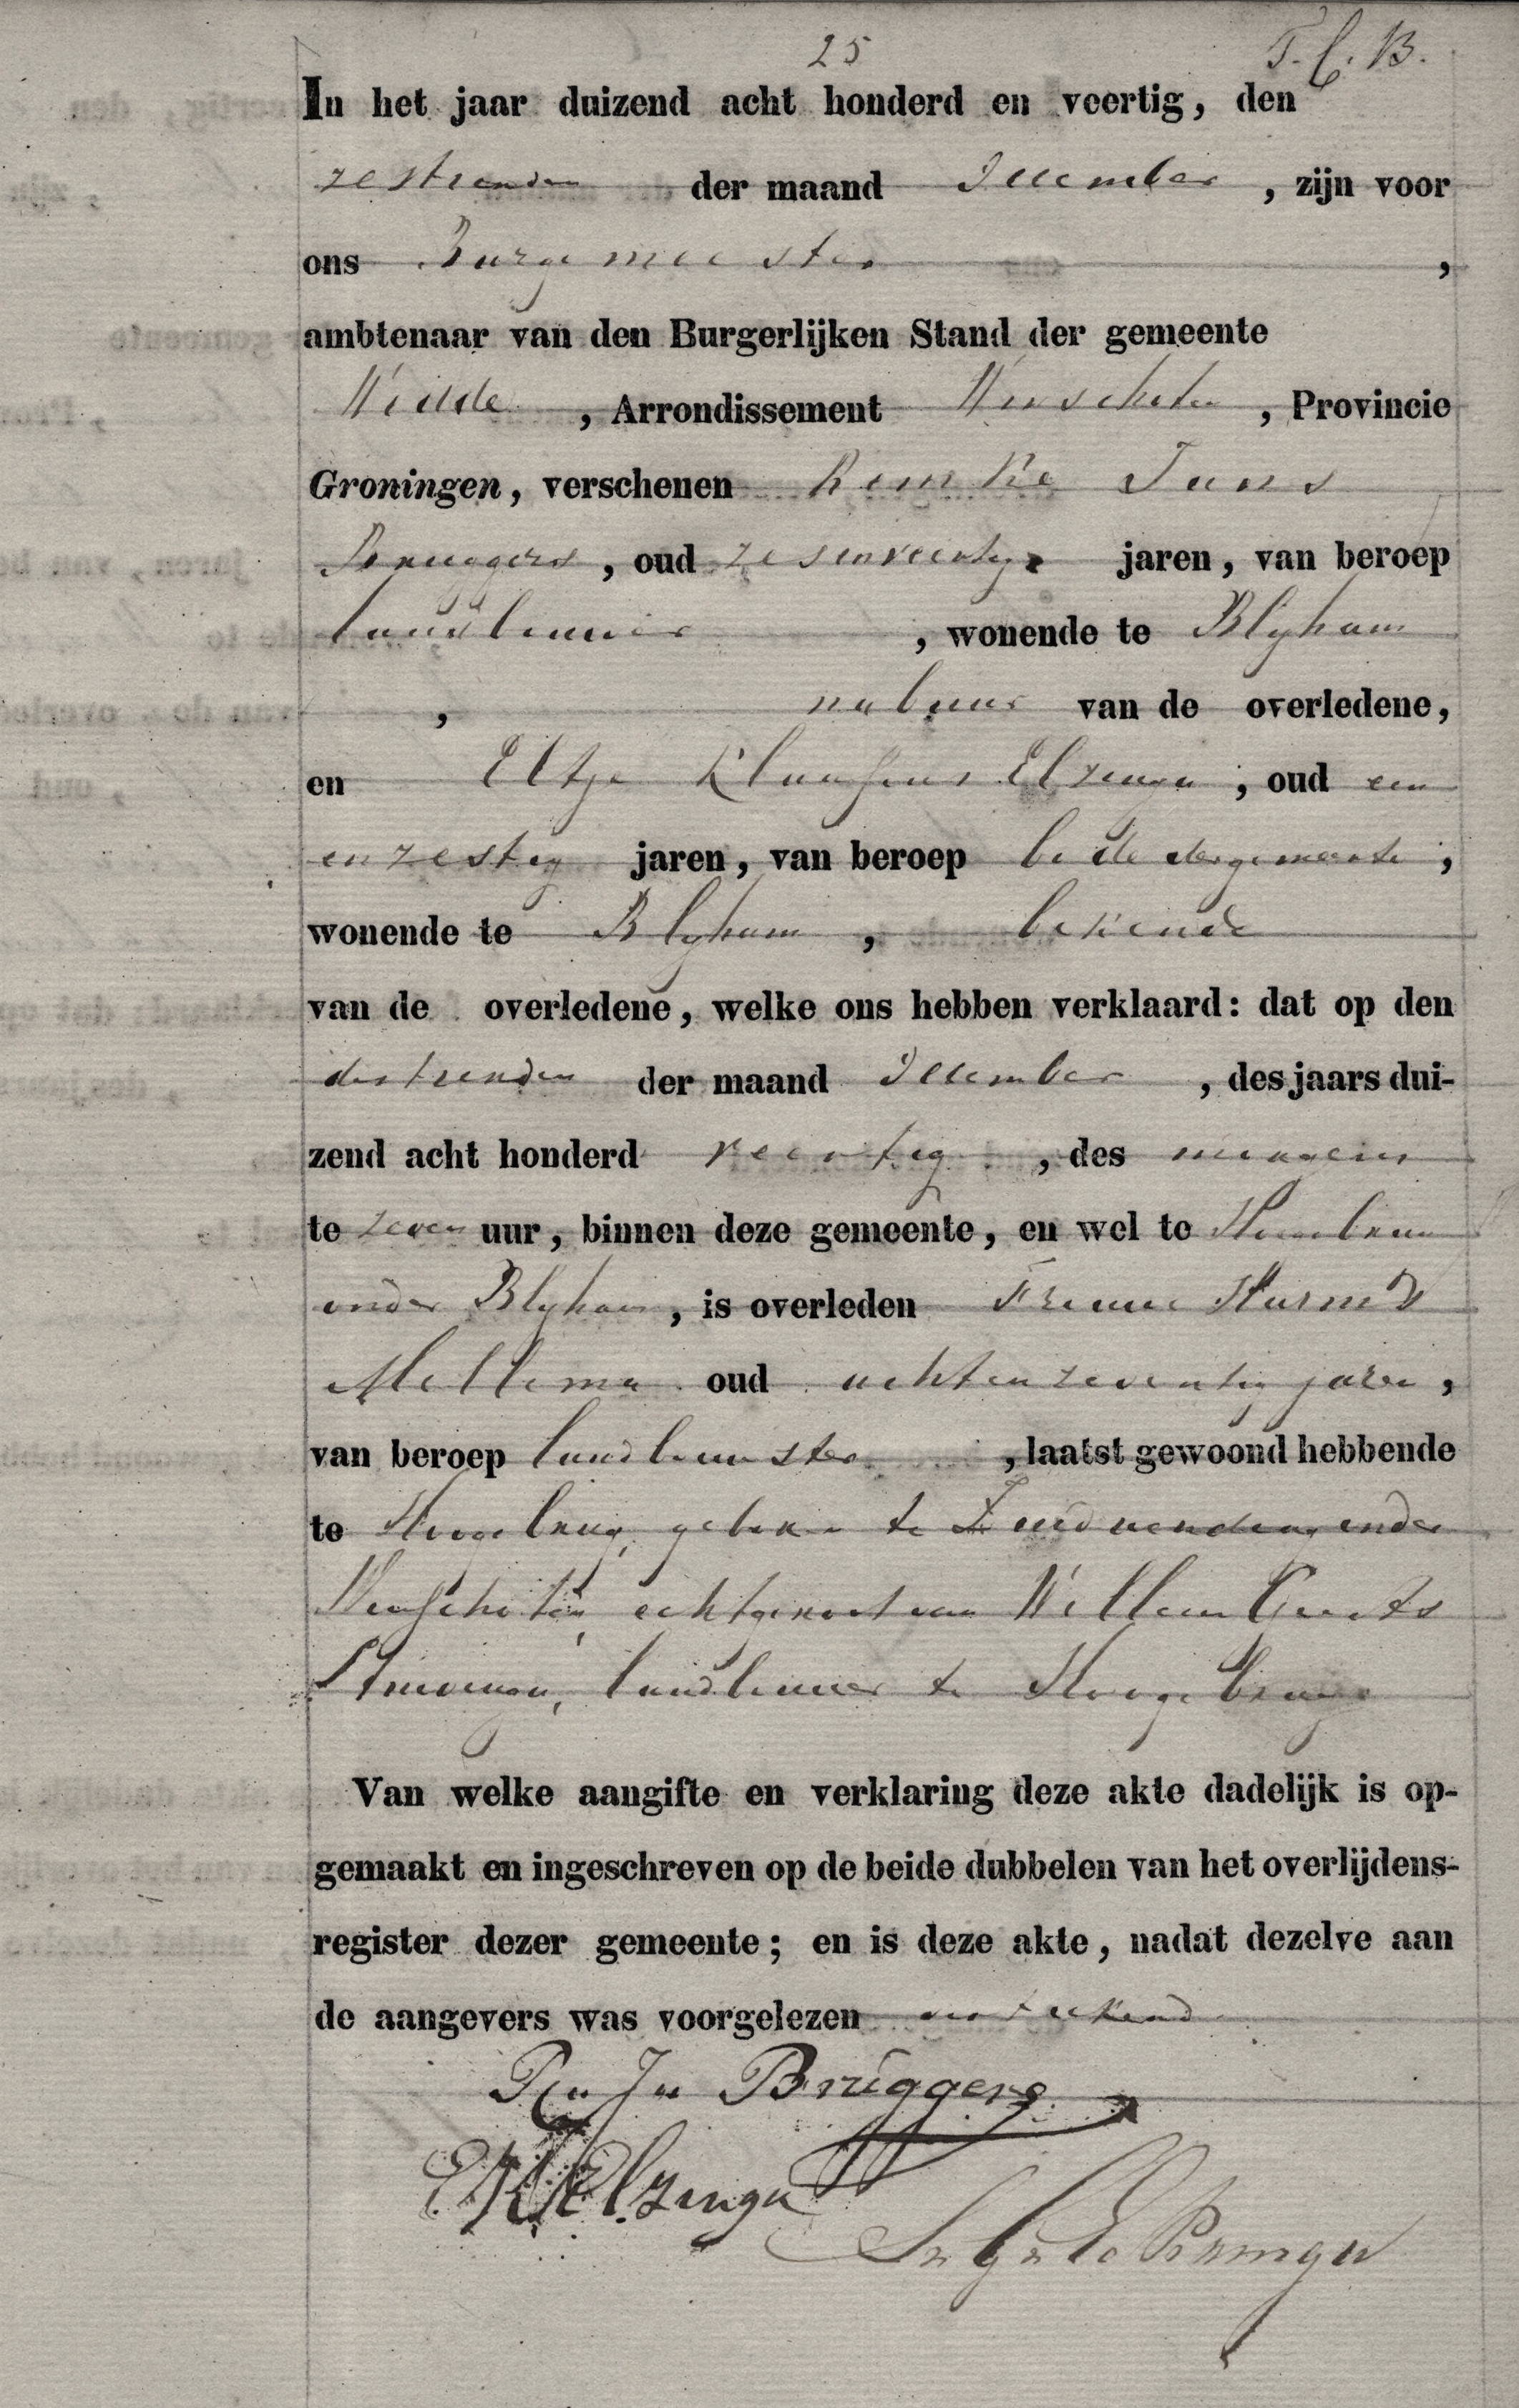 25 T. C. B.
In het jaar duizend acht honderd en veertig, den
zestienden der maand December, zijn voor
ons Burgemeester,
ambtenaar van den Burgerlijken Stand der gemeente
Wedde, Arrondissement Winschoten, Provincie
Groningen, verschenen Remke Jans
Bruggers, oud zesenveertig jaren, van beroep
landbouwer, wonende te Blyham
, nabuur van de overledene,
en Eltje Klaassens Elzenga, oud een
en zestig jaren, van beroep bode der gemeente,
wonende te Blyham, bekende
van de overledene, welke ons hebben verklaard: dat op den
dertienden der maand December, des jaars dui-
zend acht honderd veertig, des morgens
te zeven uur, binnen deze gemeente, en wel te Hoogebrug
onder Blyham, is overleden Frouwe Harms
Mellema oud achtenzeventig jaren,
van beroep landbouwster, laatst gewoond hebbende
te Hoogebrug, geboren te Zuidwending onder
Winschoten, echtgenoot van Willem Geerts
landbouwer te Hoogebrug
Van welke aangifte en verklaring deze akte dadelijk is op-
gemaakt en ingeschreven op de beide dubbelen van het overlijdens-
register dezer gemeente; en is deze akte, nadat dezelve aan
de aangevers was voorgelezen onderteekend
Re Ja Bruggers
E K Elzenga